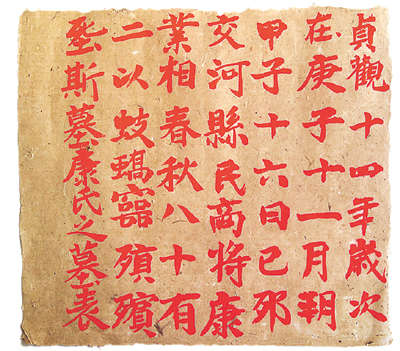 貞觀十四年歲次
在庚子十一月朔
甲子十六日己卯
交河縣民商將康
業相春秋八十有
二以蚑殞殯
斯墓康氏之墓表